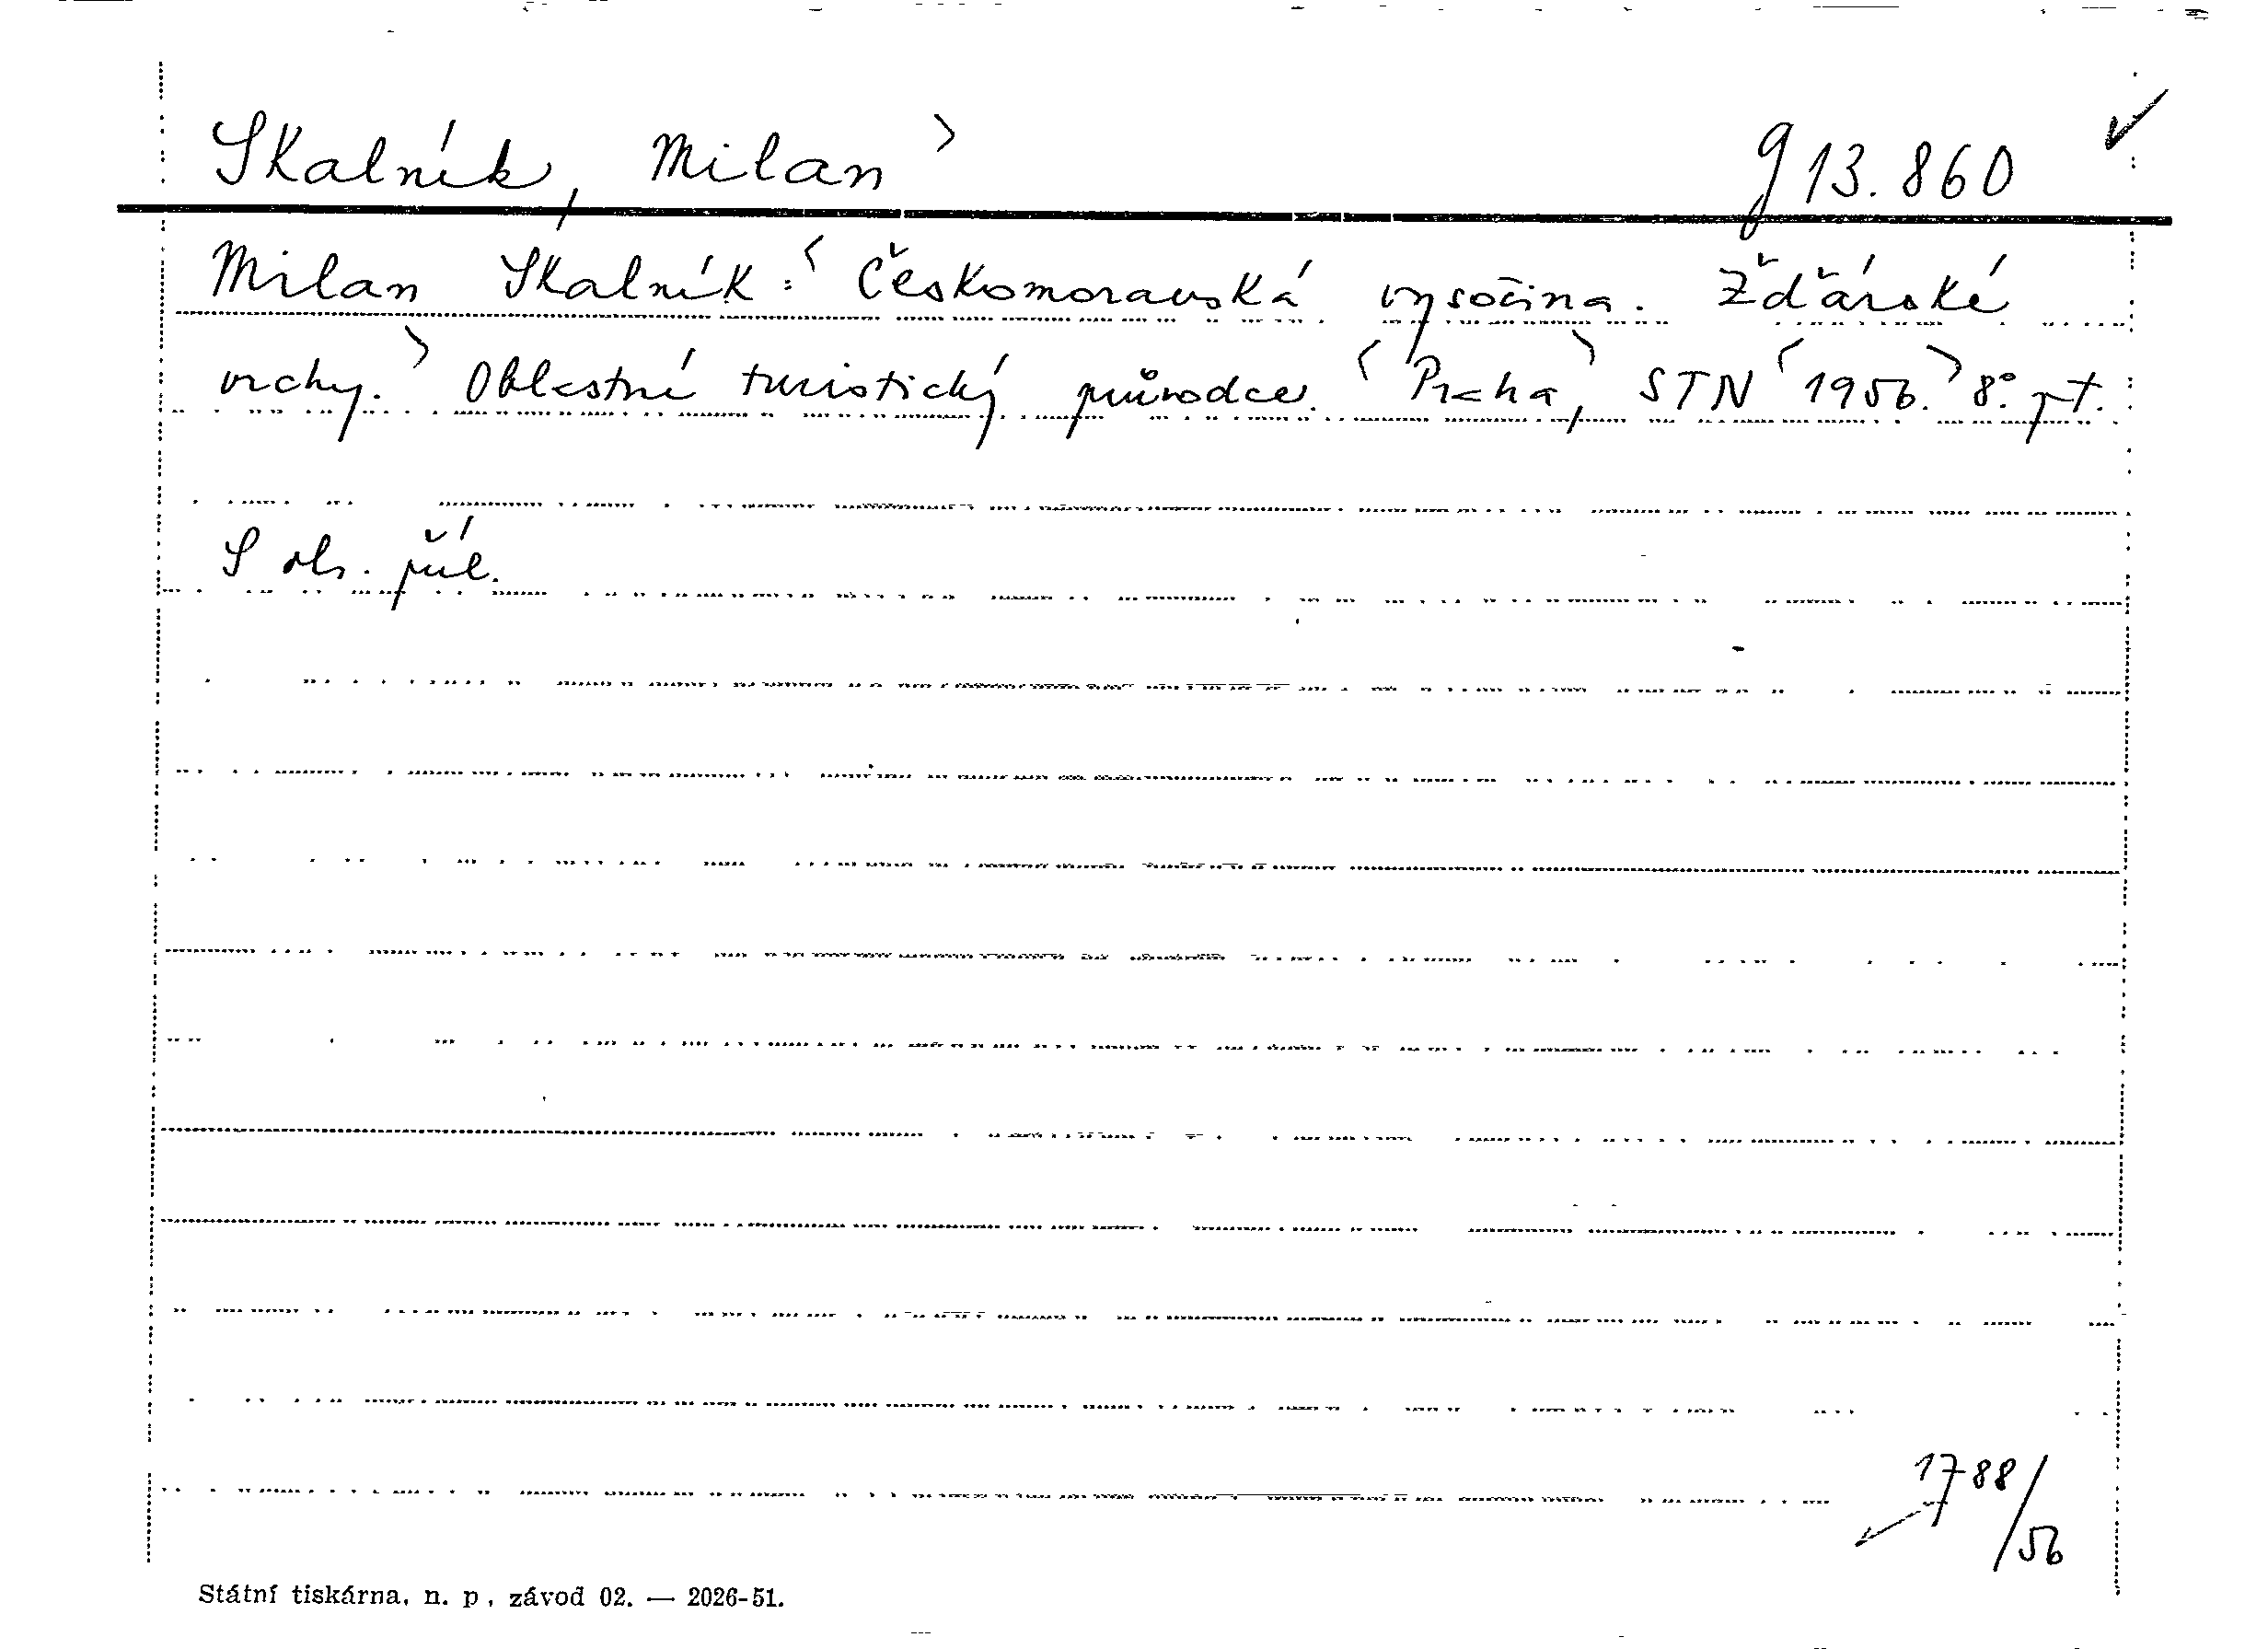 Skalník, Milan g 13.860
Milan Skalník: Českomoravská vysočina. Žďárské
vrchy. Oblastní turistický průvodce. Praha, STN 1956. 8°. pt.
S obr. příl.
1788/56
Státní tiskárna, n. p., závod 02. — 2026-51.